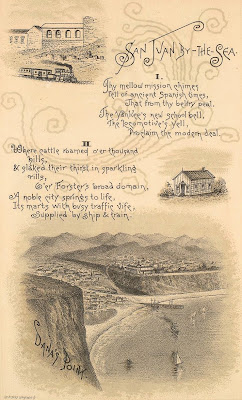 San Juan-by-the-Sea.
I.
Thy mellow mission chimes
Tell of ancient Spanish times,
That from thy belfry peal.
The Yankee's new school bell,
The locomotive's yell,
Proclaim the modern deal.
II
Where cattle roamed o'er thousand
hills,
& slaked their thirst in sparkling
rills,
O'er Forster's broad domain,
A noble city springs to life,
Its marts with busy traffic rife,
Supplied by ship & train.
Dana's Point